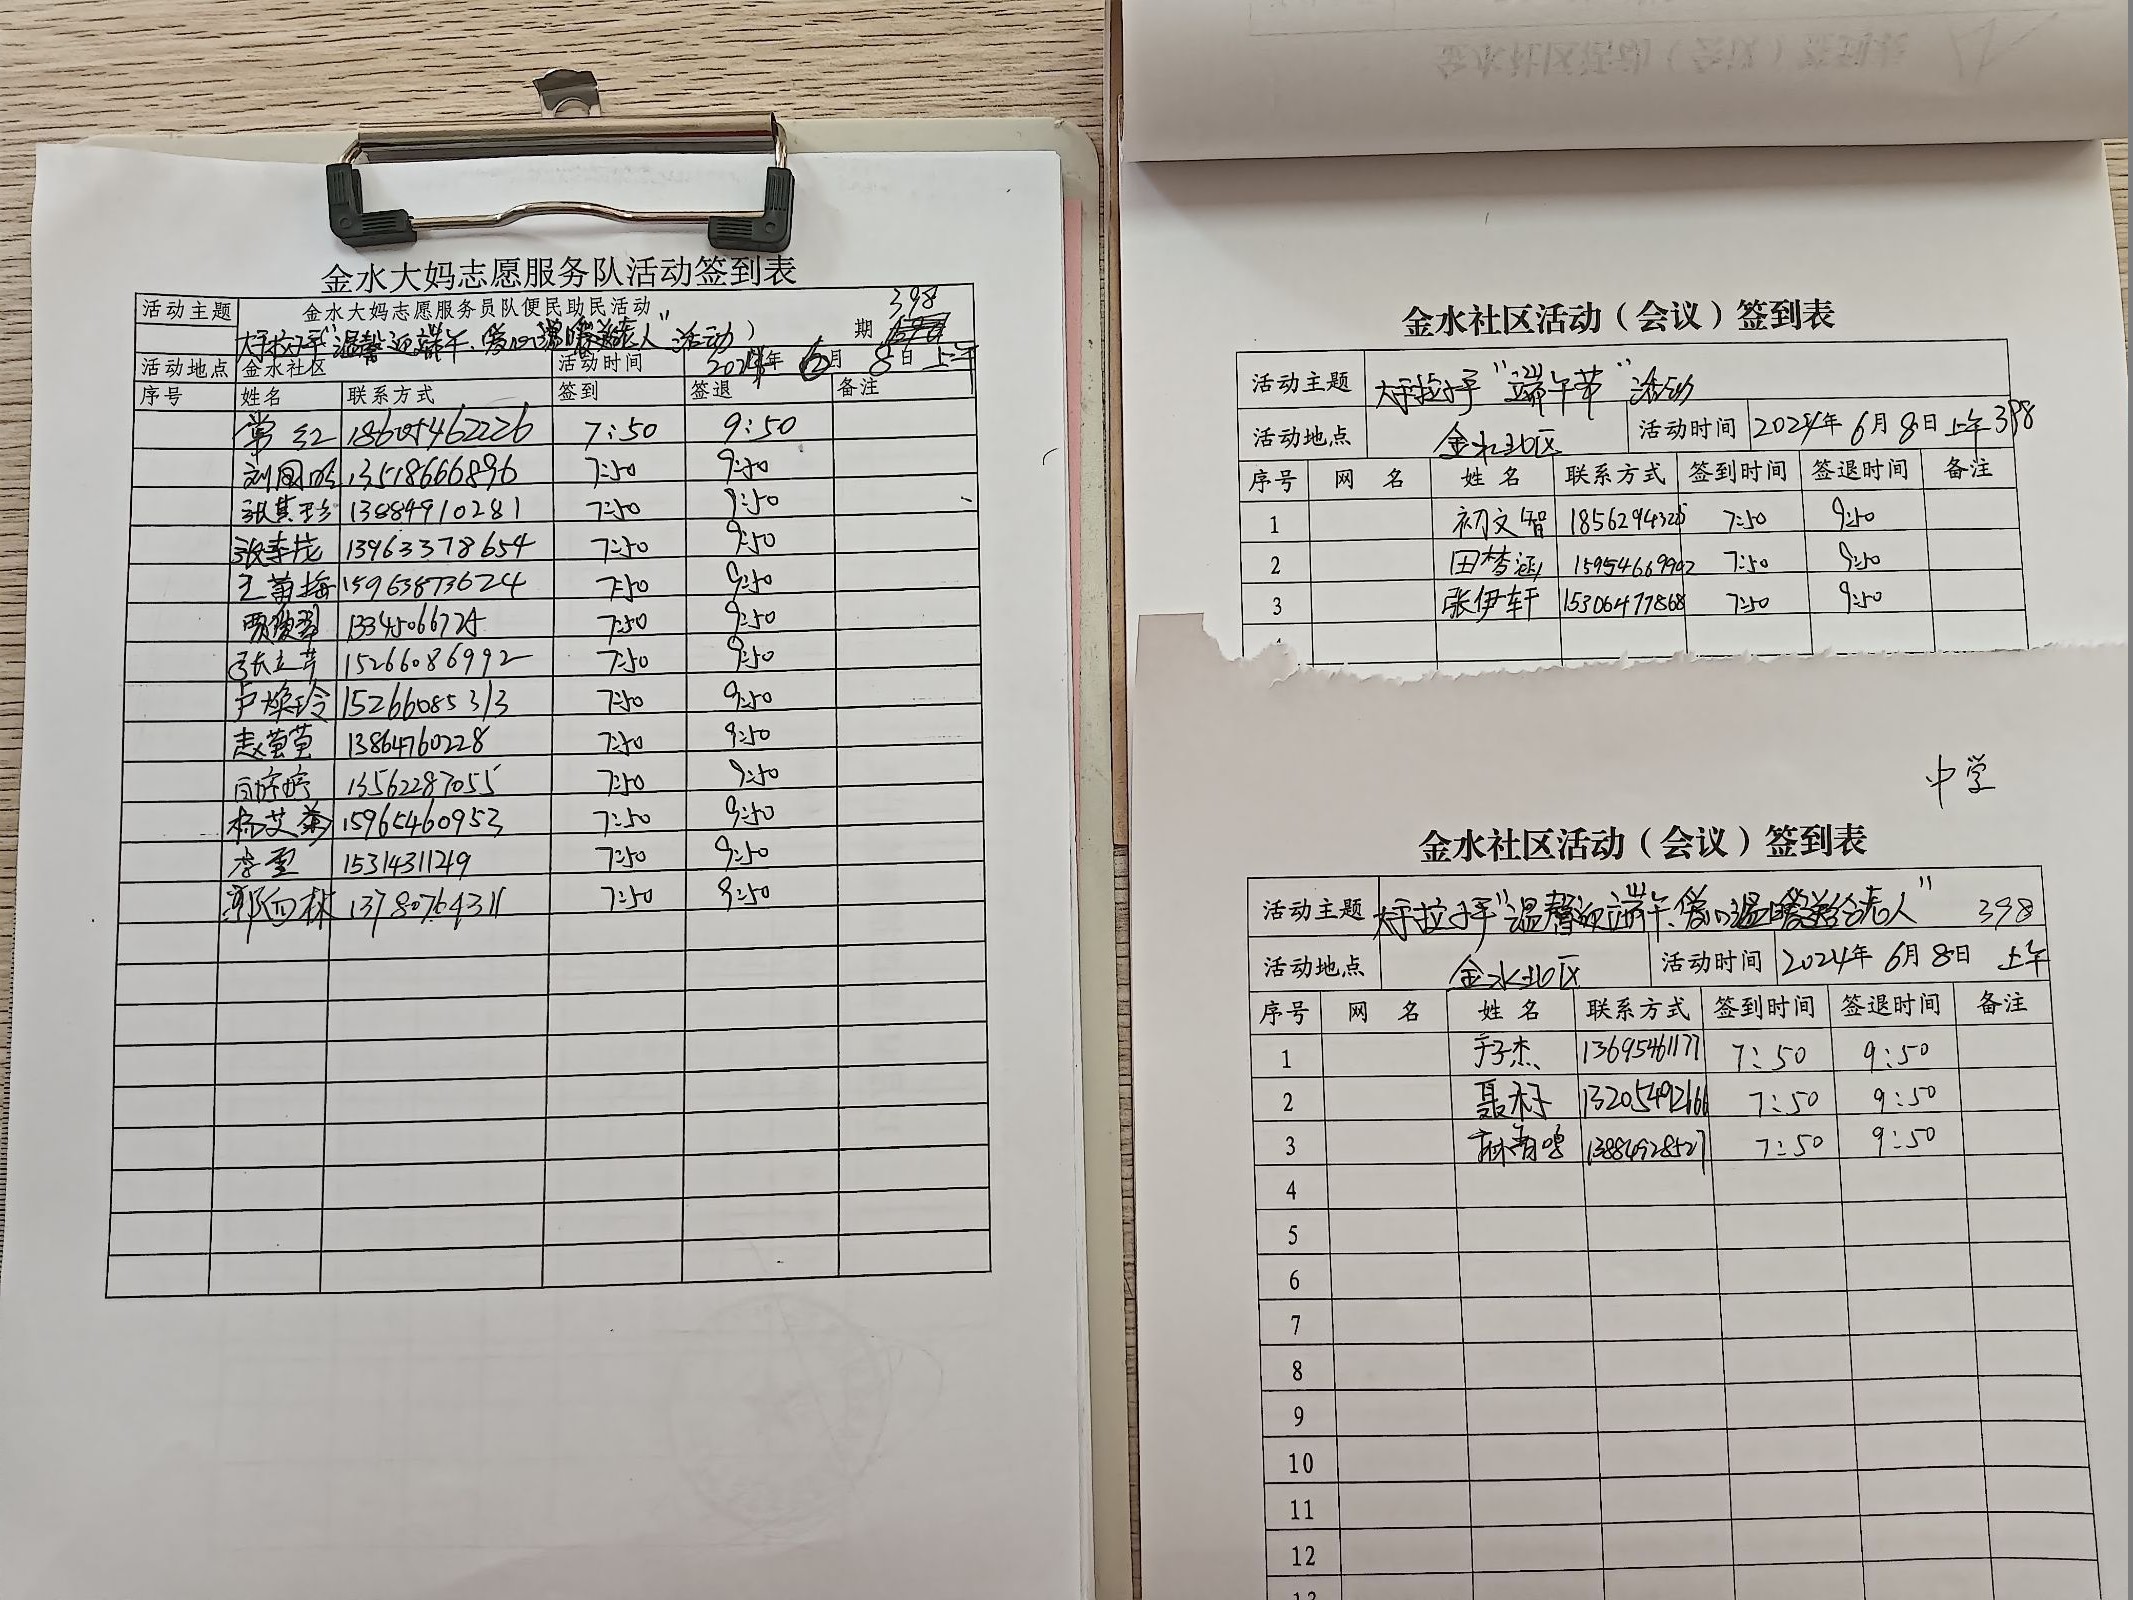 金水大妈志愿服务队活动签到表
活动主题 金水大妈志愿服务员队便民助民活动 398
大手拉小手"温馨迎端午、爱心温暖送老人"活动) 期
活动地点 金水社区 活动时间 2024年 6月 8日 上午
序号 姓名 联系方式 签到 签退 备注
常红 18605462226 7:50 9:50
13518666896 7:50 9:50
张其珍 13884910281 7:50 9:50
13963378654 7:50 9:50
15963873624 7:50 9:50
7:50 9:50
15266086992 7:50 9:50
卢焕玲 15266085313 7:50 9:50
赵萱萱 13864760228 7:50 9:50
13562287055 7:50 9:50
杨艾菊 15965460953 7:50 9:50
李雪 15314311249 7:50 9:50
郭向林 13780764311 7:50 9:50
金水社区活动(会议)签到表
活动主题 大手拉小手"端午节"活动
活动地点 金水社区 活动时间 2024年6月8日上午398
序号 网 名 姓 名 联系方式 签到时间 签退时间 备注
1 初文智 7:50 9:50
2 田梦涵 15954669992 7:50 9:50
3 张伊轩 15306477868 7:50 9:50
中学
金水社区活动(会议)签到表
活动主题 大手拉小手"温馨迎端午、爱心温暖送给老人" 398
活动地点 金水社区 活动时间 2024年6月8日 上午
序号 网 名 姓 名 联系方式 签到时间 签退时间 备注
1 于子杰 13695461177 7:50 9:50
2 13205492166 7:50 9:50
3 13884928527 7:50 9:50
4
5
6
7
8
9
10
11
12
13